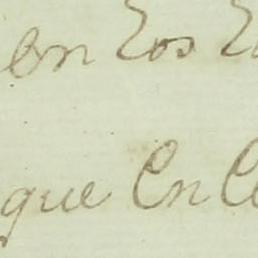 en Los
que En